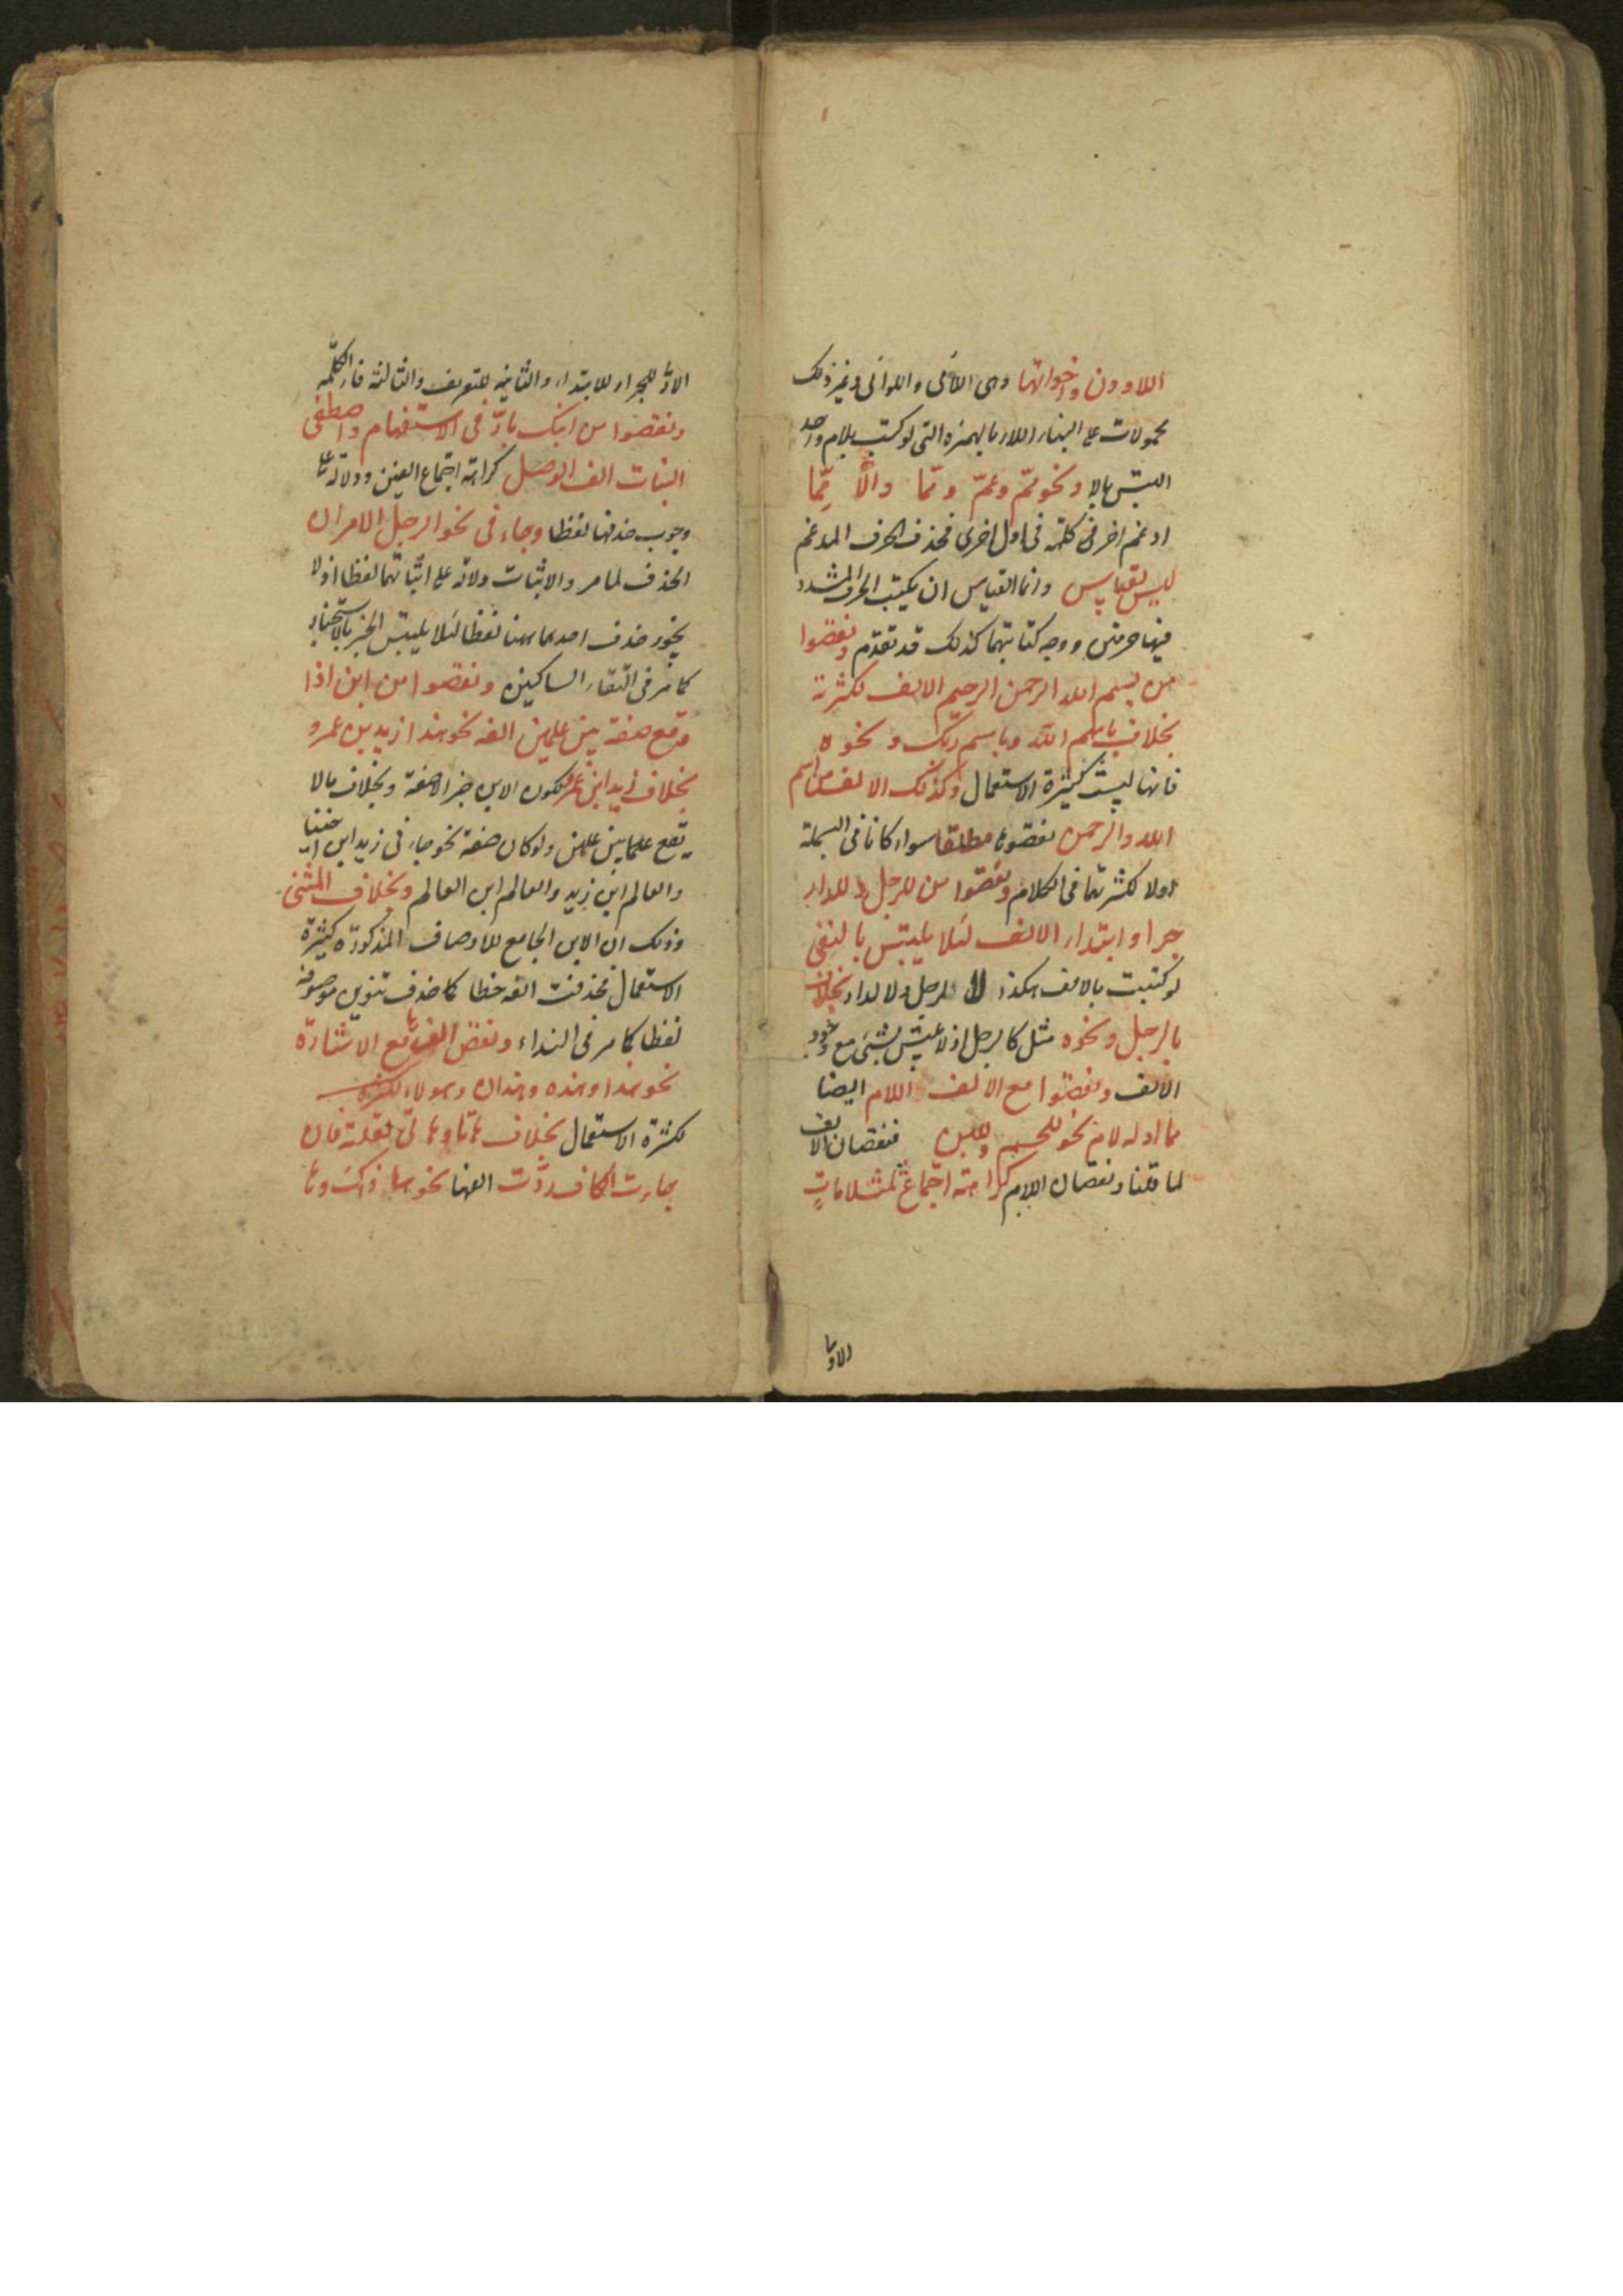 اللاوون واخواتها وهى اللائى واللواتى وغير ذلك
محمولات على البناء اللاء بالهمزه التى لو كتب بلام واحد
التبس بالا ونحو مّم وعمّ وممّا والّا مِّما
ادغم اخر فى كلمة فى اول اخرى فحذف الحرف المدغم
ليس بقياس وانما القياس ان يكتب الحرف المشدد
فيها حرفين ووجه كتابتهما كذلك قد تقدّم ونقصوا
من بسم الله الرحمن الرحيم الالف لكثرته
بخلاف باسم اللّه وباسم ربّك ونحوه
فانها ليست كثيرة الاستعمال وكذلك الالف من اسم
الله والرحمن نقصوها مطلقا سواء كانا فى البسملة
اولا لكثرتهما فى الكلام ونقصوا من للرجل وللدار
جرا وابتداء الالف لئلا يلتبس بالنفى
لو كتبت بالالف هكذا لا لرجل ولا لدار بخلاف
بالرجل ونحوه مثل كالرجل اذ لا يلتبس بشئ مع وجود
الالف ونقصوا مع الالف اللام ايضا
مما اوله لام نحو للحم وللبن فنقصان الالف
لما قلنا ونقصان اللام كراهته اجتماع ثلث لاماتٍ
الاولى
الاولى للجر او للابتداء والثانيه للتعريف والثالثة فاء الكلمة
ونقصوا من ابنك بارّ فى الاستفهام واصطفى
البنات الف الوصل كراهة اجتماع الفين ودلالة على
وجوب حذفها لفظا وجاء فى نحو الرجل الامران
الحذف لما مر والاثبات دلالة على اثباتهما لفظا اذ لا
يجوز حذف احدهما ههنا لفظا لئلا يلتبس الخبر بالاستخبار
كما مر فى التقاء الساكنين ونقصوا من ابن اذا
وقع صفة بين علمين الفه نحو هذا زيد بن عمرو
بخلاف زيد ابن عمرو لكون الابن خبرا لا صفة وبخلاف ما لا
يقع علما بين علمين ولو كان صفة نحو جاءنى زيد ابن اخينا
والعالم ابن زيد والعالم ابن العالم وبخلاف المثنى
وذلك ان الابن الجامع للاوصاف المذكورة كثيرة
الاستعمال فحذفت الفه خطا كما حذف تنوين موصوفه
لفظا كما مر فى النداء ونقص الف ها مع الاشارة
نحو هذا وهذه وهذان وهؤلاء لكثره
لكثرة الاستعمال بخلاف هاتا وهاتى لقلته فان
جاءت الكاف ردّت الفها نحو ها ذاك وها